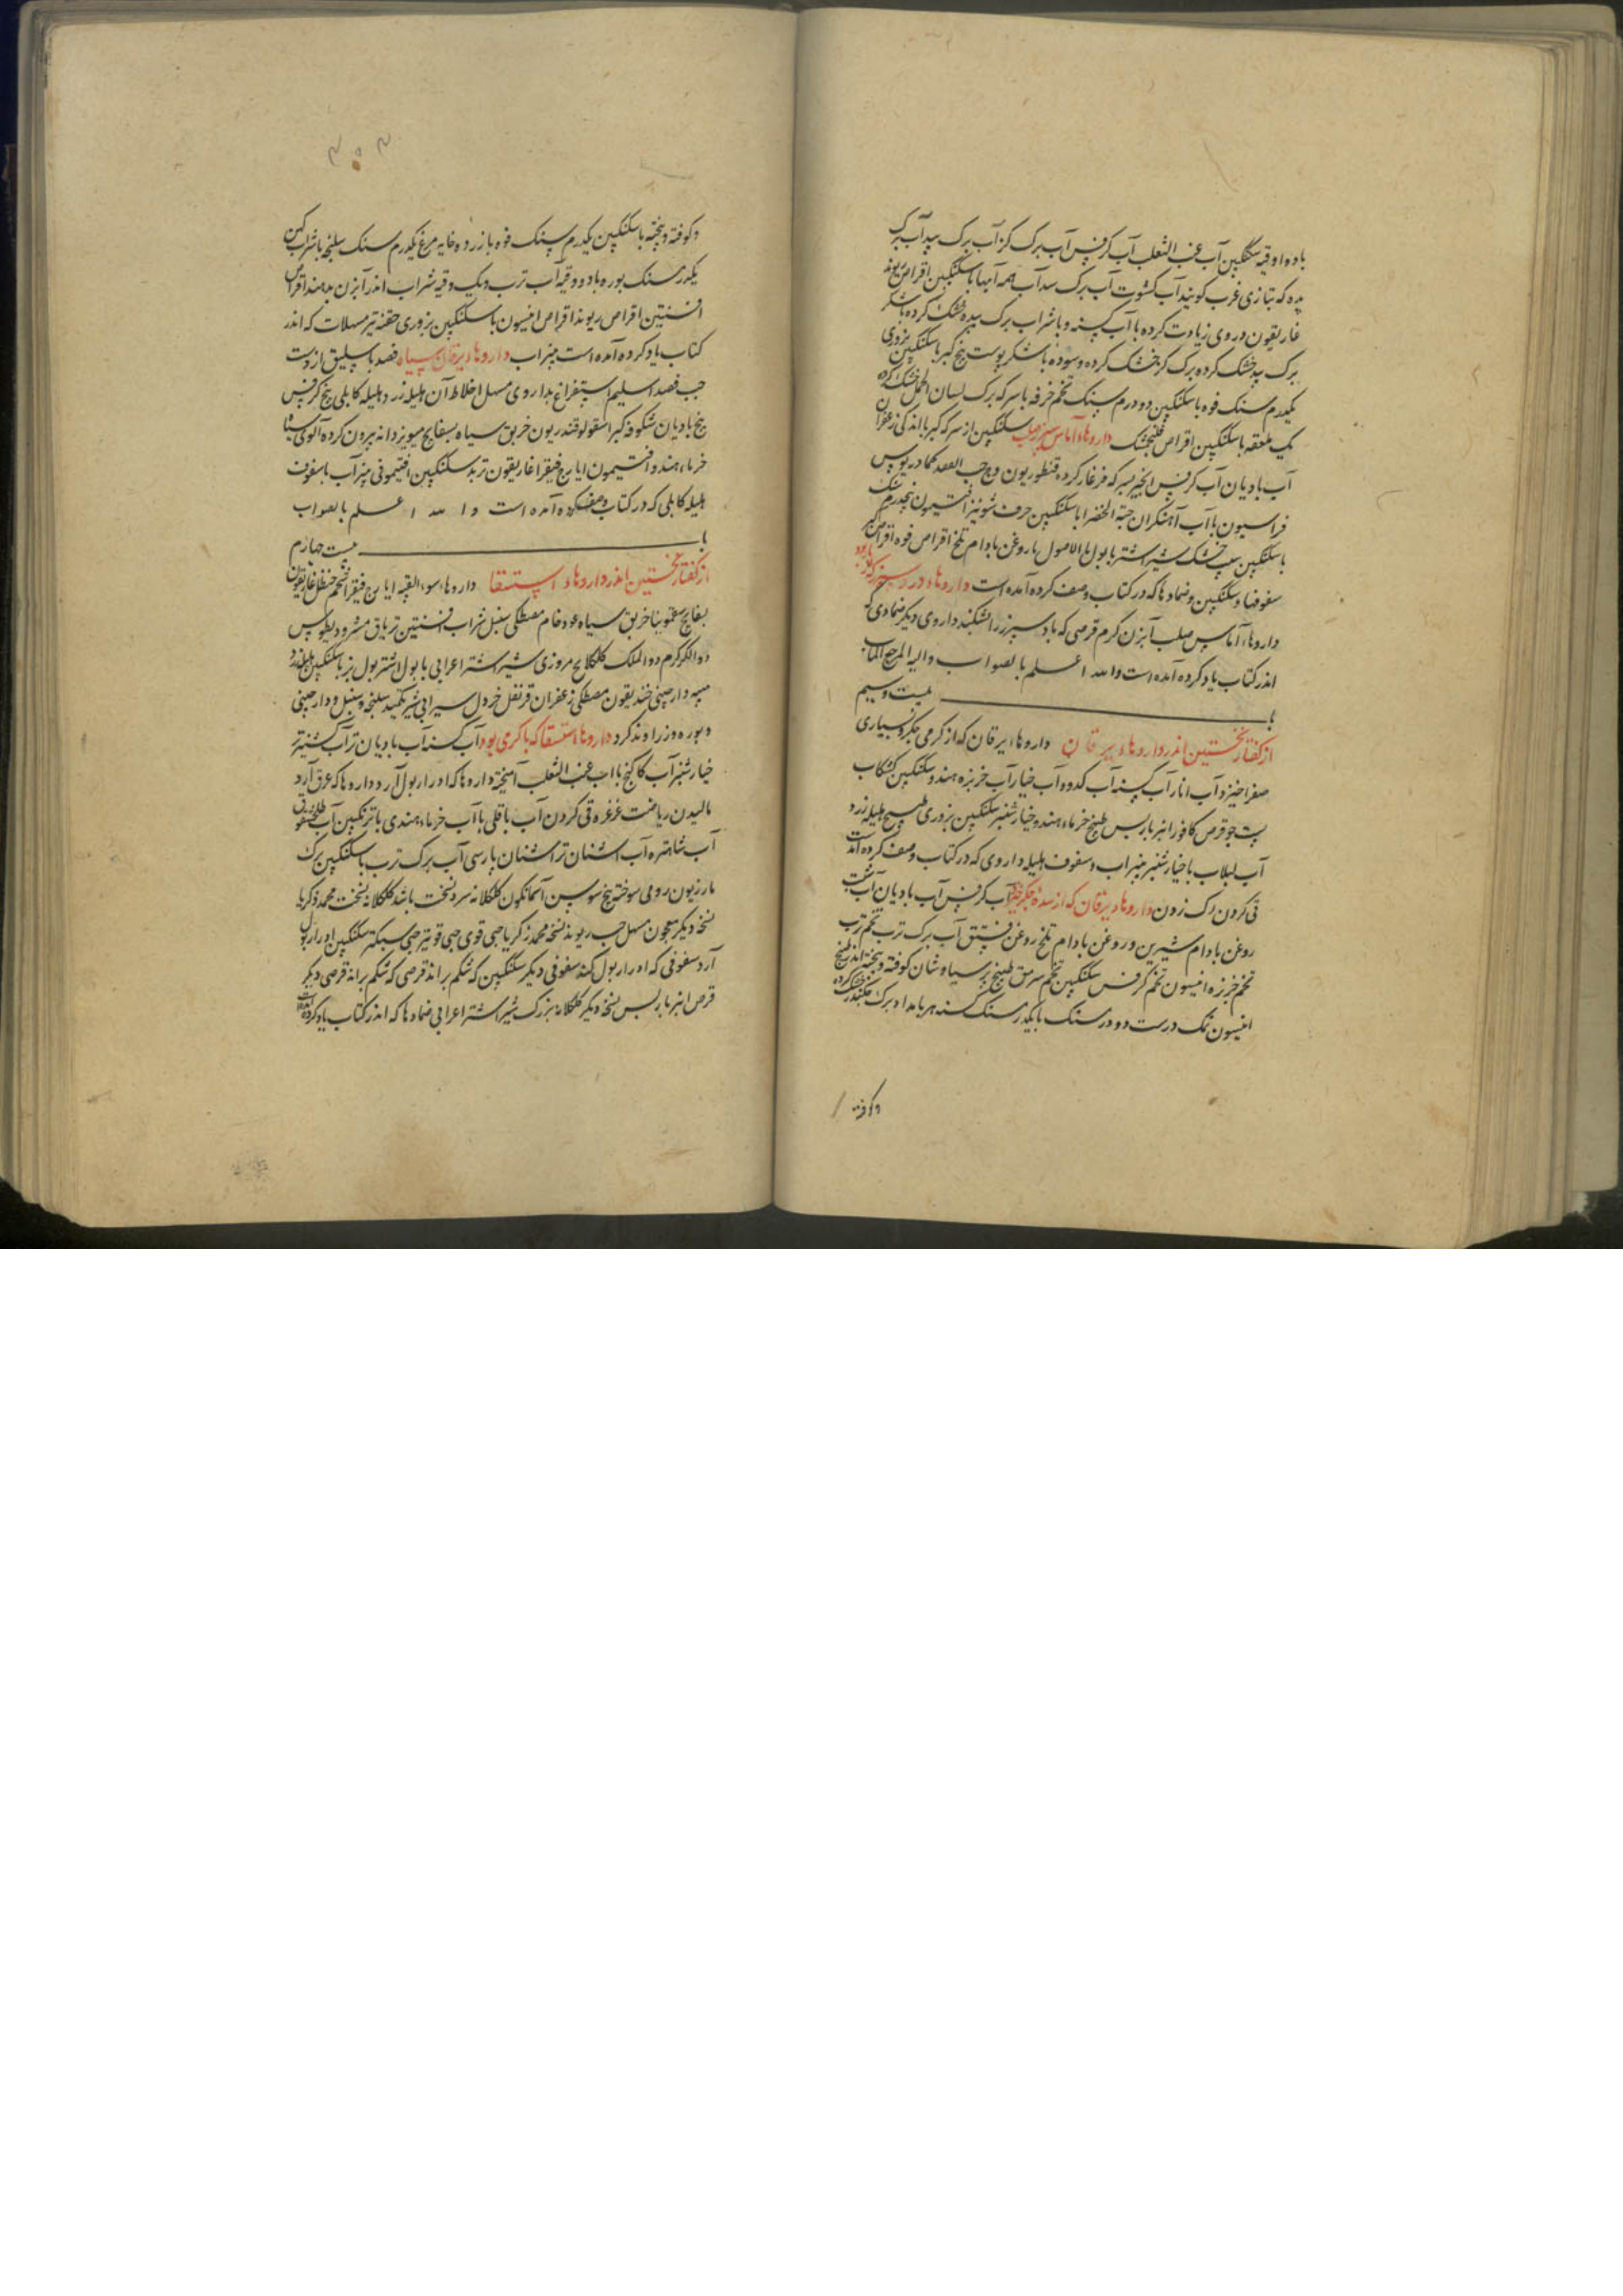 با ده اوقیه سکنگبین آب عنب الثعلب آب کرفس آب برک کز آب برک بید آب برک
پده که بتازی غرب کویند آب کشوت آب برک سداب همه آبها با سکنگبین اقراص ریوند
غاریقون در وی زیادت کرده با آب کسنه و با شراب برک پده خشک کرده با شکر
برک بید خشک کرده برک کز خشک کرده و سوده با شکر پوست بیخ کبر با سکنگبین بزوری
یکدرم سنک فوه با سکنگبین دو درم سنک تخم خرفه با سرکه برک لسان الحمل خشک کرده
یک ملعقه با سکنگبین اقراص فنجنکشت داروهاء آماس سپرز صلب سکنگبین از سرکه کبر با اندکی زعفران
آب بادیان آب کرفس انجیر بسرکه فرغار کرده قنطوریون وج حب الفقد کمادریوس
فراسیون با آب آهنکران حبة الخضرا با سکنگبین حرف شونیز افتیمون پنجدرم سنک
با سکنگبین خشک شیر اشتر با بول ماء الاصول با روغن بادام تلخ اقراص فوه اقراص کبر
سفوفها و سکنگبین و ضمادها که در کتاب وصف کرده آمده است داروهاء درد سپرز که از باد بود
داروهاء آماس صلب آبزن کرم قرصی که باد سپرز را بشکند داروی دیکر ضمادی که
اندر کتاب یاد کرده آمده است والله اعلم بالصواب والیه المرجع المآب
با بیست و سیم
از کفتار نخستین اندر داروهاء یرقان داروهاء یرقان که از کرمی جکر و بسیاری
صفرا خیزد آب انار آب کسنه آب کدو و آب خیار آب خربزه هندو سکنگبین کشکاب
پست جو قرص کافور انبرباریس طبیخ خرماء هندو خیارشنبر سکنگبین بزوری طبیخ هلیله زرد
آب لبلاب با خیارشنبر پنیراب و سفوف هلیله داروی که در کتاب وصف کرده آمده است
قی کردن رک زدن داروهاء یرقان که از سده جکر خیزد آب کرفس آب بادیان آب شبت
روغن بادام شیرین و روغن بادام تلخ روغن فستق آب برک ترب تخم ترب
تخم خربزه انیسون تخم کرفس سکنگبین تخم سرمق طبیخ پرسیاوشان کوفته و بیخته اندر طبیخ
انیسون نمک درست دو درمسنک با یکدرمسنک کسنه هر بامداد برک خشک کرده
وکوفته
۳۰۳
وکوفته و بیخته با سکنگبین یکدرم سنک فوه با زرده خایه مرغ یکدرم سنک سلیخه با شراب کهن
یکدرمسنک بوره با دو وقیه آب ترب و یک وقیه شراب اندر آبزن بدهند اقراص
افسنتین اقراص ریوند اقراص انیسون با سکنگبین بزوری حقنه تیز مسهلات که اندر
کتاب یاد کرده آمده است پنیراب داروهاء یرقان سیاه فصد باسلیق از دست
چپ فصد اسیلم استفراغ بداروی مسهل اخلاط آن هلیله زرد و هلیله کابلی بیخ کرفس
بیخ بادیان شکوفه کبر اسقولوقندریون خربق سیاه بسفایج میویز دانه بیرون کرده آلوی سیاه
خرماء هندو افتیمون ایارج فیقرا غاریقون تربد سکنگبین افتیمونی پنیرآب با سفوف
هلیله کابلی که در کتاب وصف کرده آمده است والله اعلم بالصواب
با بیست چهارم
از کفتار نخستین اندر داروهاء استسقا داروهاء سوء القنیه ایارج فیقرا شحم حنظل غاریقون
بسفایج سقمونیا خربق سیاه عود خام مصطکی سنبل شراب افسنتین تریاق مثرودیطوس
دواء الکرکم دواء الملک کلکلانج مروزی شیر اشتر اعرابی با بول اشتر بول بز با سکنگبین هلیله زرد
میبه دارچینی خندیقون مصطکی زعفران قرنفل خردل سیرابی شیر تکمید سلیخه و سنبل و دارچینی
و بوره و زراوند کرد داروهاء استسقا که با کرمی بود آب کسنه آب بادیان تر آب کشنیز تر
خیارشنبر آب کاکنج با آب عنب الثعلب آمیخته داروها که ادرار بول آرد و داروها که عرق آرد
مالیدن ریاضت غرغره قی کردن آب باقلی با آب خرماء هندی با ترنکبین آب
آب شاهتره آب اشنان تر اشنان پارسی آب برک ترب با سکنگبین برک
مازریون رومی سوخته بیخ سوسن آسمانکون کلکلانه سرد نسخت باشد کلکلانه نسخت محمد زکریا
نسخه دیکر معجون مسهل حب ریوند نسخه محمد زکریا حبی قوی حبی قویتر حبی سبکتر سکنگبین ادرار بول
آرد سفوفی که ادرار بول کند سفوفی دیکر سکنگبین که شکم براند قرصی که شکم براند قرصی دیکر
قرص انبرباریس نسخه دیکر کلکلانه بزرک شیر اشتر اعرابی ضمادها که اندر کتاب یاد کرده آمده است